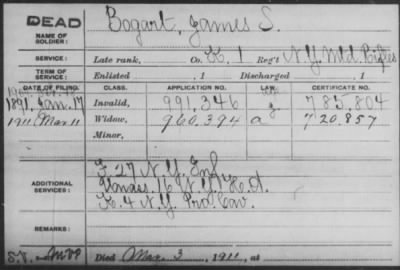 DEAD
NAME OF SOLDIER: Bogart, James S.
SERVICE: Late rank, Co. K, 1 Reg't N.Y. Mtd. Rifles
TERM OF SERVICE: Enlisted , 1 Discharged , 1
DATE OF FILING. CLASS. APPLICATION NO. LAW. CERTIFICATE NO.
1891, Jan. 17 Invalid, 991,346 785,804
1911 Mar 11 Widow, 960,394 a 720,857
Minor,
ADDITIONAL SERVICES: F. 27 N.Y. Inf
16 N.Y. H.A.
K. 4 N.Y. Pro. Cav.
REMARKS:
Died Mar. 3, 1911, at